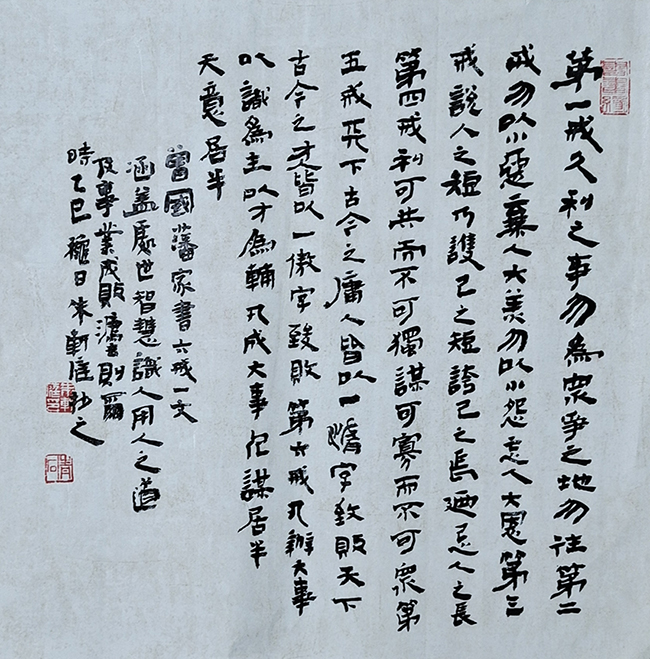 第一戒久利之事勿為眾爭之地勿往第二
戒勿以小惡棄人大美勿以小怨忘人大恩第三
戒說人之短乃護己之短誇己之長廼忌人之長
第四戒利可共而不可獨謀可寡而不可眾第
五戒天下古今之庸人皆以一惰字致敗天下
古今之才皆以一傲字致敗第六戒凡辦大事
以識為主以才為輔凡成大事人謀居半
天意居半
曾國藩家書六戒一文
涵蓋處世智慧識人用人之道
及事業成敗法則爾
時乙巳 日朱軒庭 之